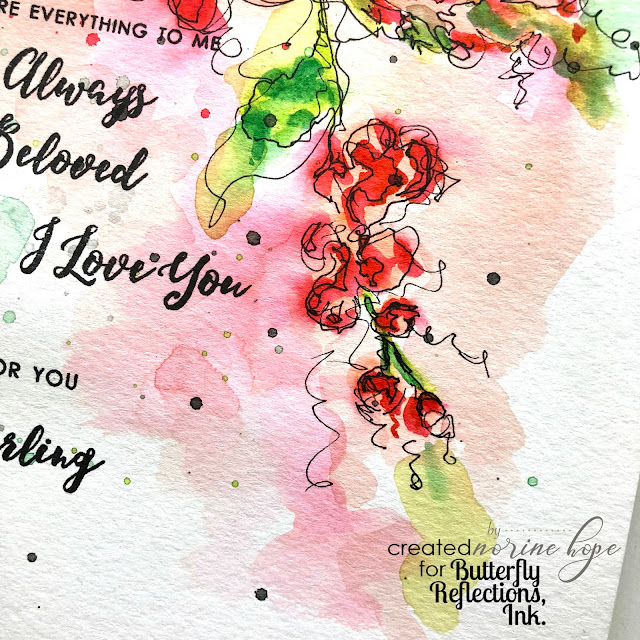 RE EVERYTHING TO ME
Always
Beloved
I Love You
OR YOU
rling
by
created norine hope
for Butterfly
Reflections,
Ink.